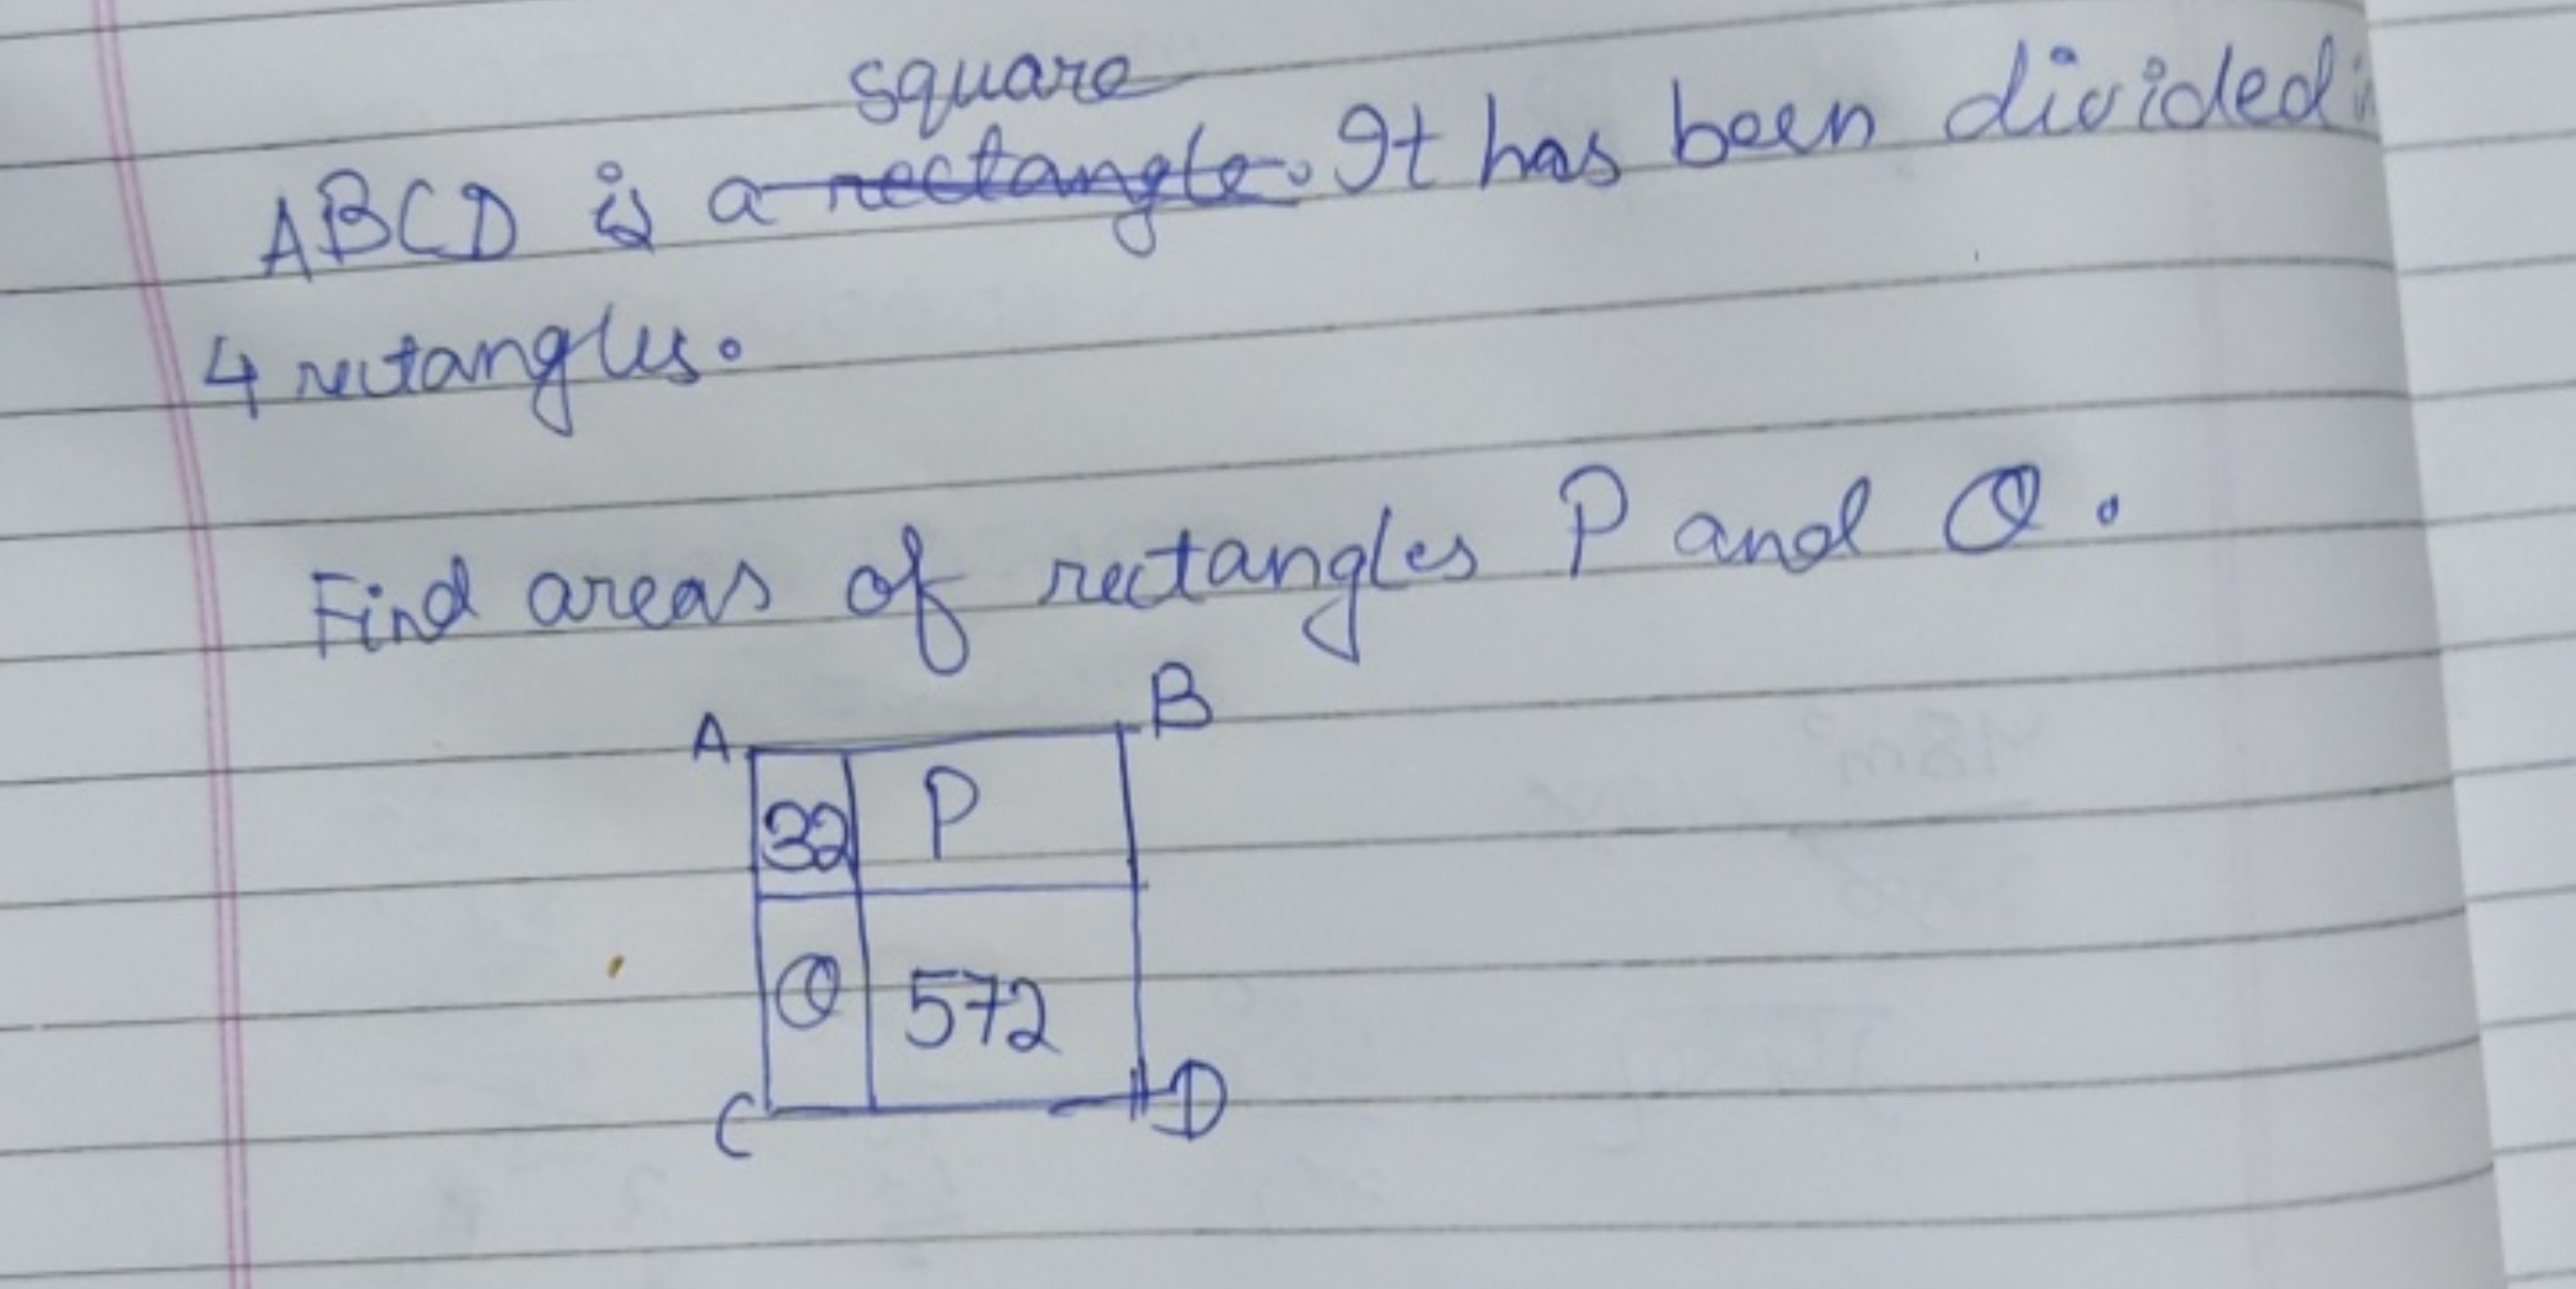 square
ABCD is a rectangle. It has been divided
4 rectangles.
Find areas of rectangles P and Q.
A B
32 P
Q 572
C D